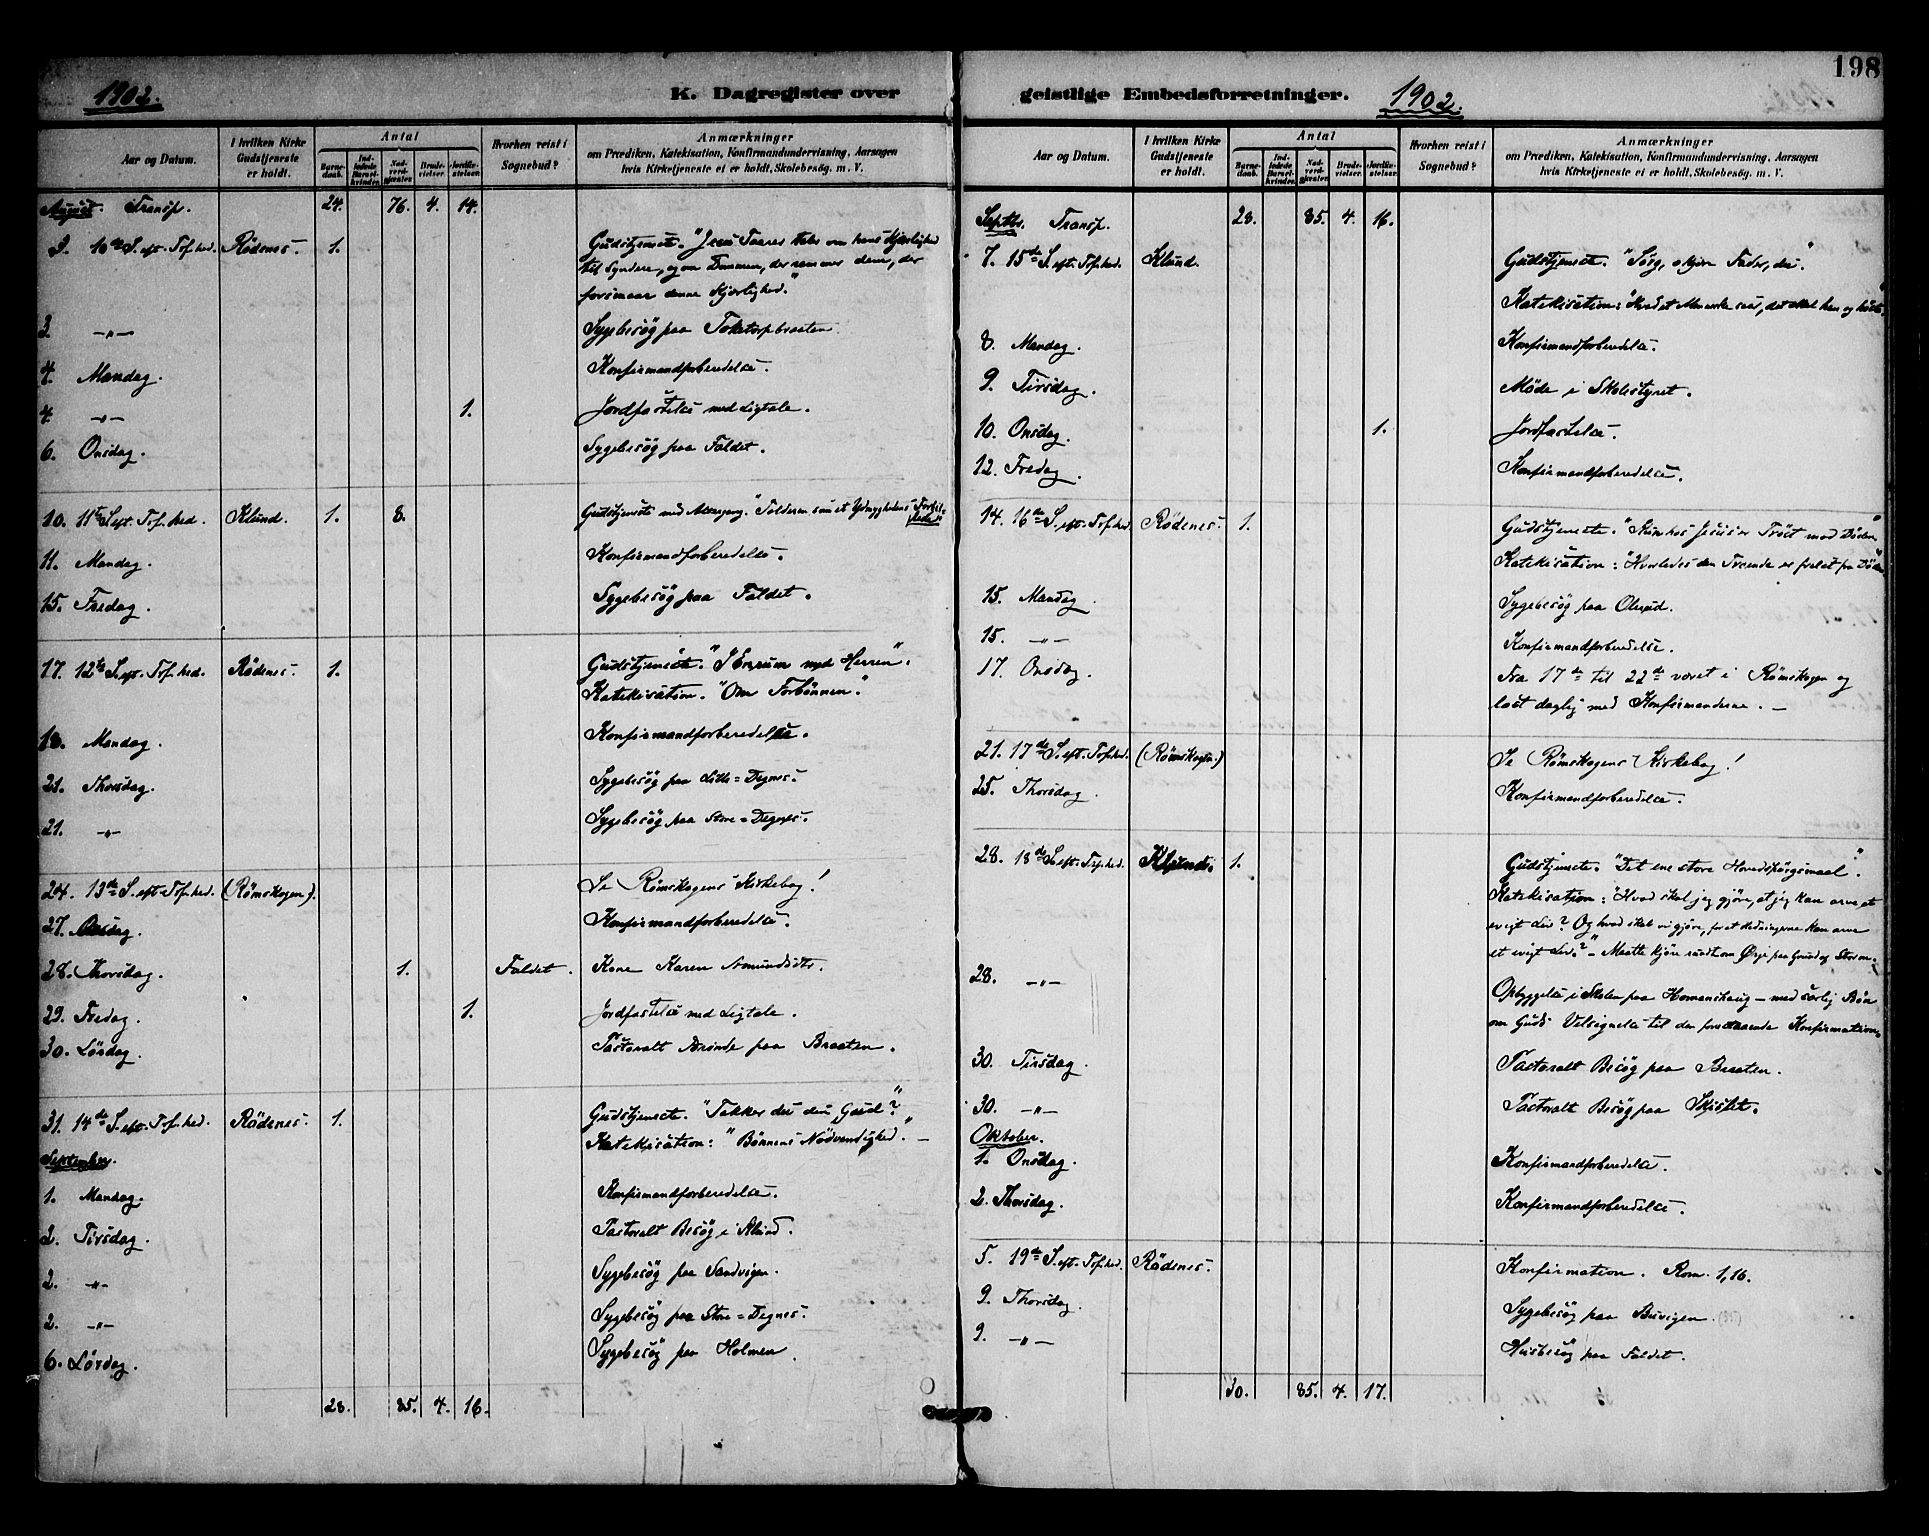 198
1902.
K. Dagregister over
geistlige Embedsforretninger.
1902.
Aar og Datum.
I hvilken Kirke Gudstjeneste er holdt.
Antal
Barnedaab.
Indledede Barselkvinder.
Nadverdgjæster.
Brudevielser.
Jordfæstelser.
Hvorhen reist i Sognebud?
Anmærkninger
om Prædiken, Katekisation, Konfirmandundervisning, Aarsagen
hvis Kirketjeneste ei er holdt, Skolebesøg. m. V.
August. Transp. 24. 76. 4. 14.
3. 10de S. eft. Tref.hed. Rödenes. 1. Gudstjeneste. "Jesu Taarer tales om hans Kjærlighed
til Syndere, og om Dommen, der rammer dem, der
forsmaar denne Kjærlighed."
3 -"- Sygebesög paa Toketorpbraaten
4. Mandag. Konfirmandforberedelse.
4. -"- 1. Jordfæstelse med Ligtale.
6. Onsdag. Sygebesög paa Faldet.
10. 11te S. eft. Tref.hed. Klund. 1. 8. Gudstjeneste med Altergang. "Tolderen som et Ydmyghedens Forbillede"
11. Mandag. Konfirmandforberedelse.
15. Fredag. Sygebesög paa Faldet.
17. 12te S. eft. Tref.hed. Rödenes. 1. Gudstjeneste. "I Enrum med Herren".
Katekisation. "Om Forbönnen."
18. Mandag. Konfirmandforberedelse.
21. Thorsdag. Sygebesög paa Lille=Degnes.
21. -"- Sygebesög paa Store=Degnes.
24. 13de S. eft. Tref.hed. (Römskogen). Se Römskogens Kirkebog!
27. Onsdag. Konfirmandforberedelse.
28. Thorsdag. 1. Faldet. Kone Karen Amundsdtr.
29. Fredag. 1. Jordfæstelse med Ligtale.
30. Lördag. Pastoralt Ærinde paa Braaten.
31. 14de S. eft. Tref.hed. Rödenes. 1. Gudstjeneste. "Takker du din Gud?"
Katekisation: "Bönnens Nödvendighed." -
September.
1. Mandag. Konfirmandforberedelse.
2. Tirsdag. Pastoralt Besög i Klund.
2. -"- Sygebesög paa Sandvigen.
2. -"- Sygebesög paa Store=Degnes.
6. Lördag. Sygebesög paa Holmen.
28. 85. 4. 16.
Aar og Datum.
I hvilken Kirke Gudstjeneste er holdt.
Antal
Barnedaab.
Indledede Barselkvinder.
Nadverdgjæster.
Brudevielser.
Jordfæstelser.
Hvorhen reist i Sognebud?
Anmærkninger
om Prædiken, Katekisation, Konfirmandundervisning, Aarsagen
hvis Kirketjeneste ei er holdt, Skolebesøg. m. V.
Septbr. Transp. 28. 85. 4. 16.
7. 15de S. eft. Tref.hed. Klund. Gudstjeneste. "Sörg, o kjære Fader, du."
Katekisation: "Hvad et Menneske saar, det skal han og höste."
8. Mandag. Konfirmandforberedelse.
9. Tirsdag. Möde i Skolestyret.
10. Onsdag. 1. Jordfæstelse.
12. Fredag. Konfirmandforberedelse.
14. 16de S. eft. Tref.hed. Rödenes. 1. Gudstjeneste. "Kun hos Jesus er Tröst mod Döden"
Katekisation: "Hvorledes den Troende er frelst fra Döden"
15. Mandag. Sygebesög paa
15. -"- Konfirmandforberedelse.
17. Onsdag. Fra 17de til 22de været i Römskogen og
læst daglig med Konfirmanderne. -
21. 17de S. eft. Tref.hed. (Römskogen.) Se Römskogens Kirkebog!
25. Thorsdag. Konfirmandforberedelse.
28. 18de S. eft. Tref.hed. Klund. 1. Gudstjeneste. "Det ene store Hovedspörgsmaal."
Katekisation: "Hvad skal jeg gjöre, at jeg kan arve et
evigt Liv? Og hvad skal vi gjöre, for at Hedningerne kan arve
et evigt Liv?" - Maatte kjöre rundt om Örje paa Grund af Storm.
28. -"- Opbyggelse i Skolen paa Homanshaug - med særlig Bön
om Guds Velsignelse til den forestaaende Konfirmation.
30. Tirsdag. Pastoralt Besög paa Braaten.
30. -"- Pastoralt Besög paa
Oktober.
1. Onsdag. Konfirmandforberedelse.
2. Thorsdag. Konfirmandforberedelse.
5. 19de S. eft. Tref.hed. Rödenes. Konfirmation. Rom. 1,16.
9. Thorsdag. Sygebesög paa Buvigen.
9. -"- Husbesög paa Faldet.
30. 85. 4. 17.